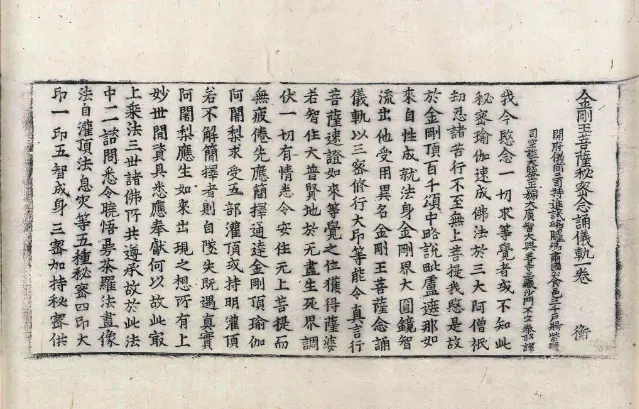 金剛王菩薩秘密念誦儀軌一卷 衡
開府儀同三司特進試鴻臚卿肅國公食邑三千戶賜紫贈
司空謚大鑒正號大廣智大興善寺三藏沙門不空奉詔譯
我今愍念一切求等覺者或不知此
秘密瑜伽速成佛法於三大阿僧祇
劫忍諸苦行不至無上菩提我愍是故
於金剛頂百千頌中略說毗盧遮那如
來自性成就法身金剛界大圓鏡智
流出他受用異名金剛王菩薩念誦
儀軌以三密修行大印等能令真言行
菩薩速證如來等覺之位獲得薩婆
若智住大普賢地於无盡生死界調
伏一切有情悉令安住无上菩提而
無疲倦先應簡擇通達金剛頂瑜伽
阿闍梨求受五部灌頂或持明灌頂
若不解簡擇者則自墜失既遇真實
阿闍梨應生如來出現之想所有上
妙世閒資具悉應奉獻何以故此㝡
上乘法三世諸佛所共遵承故於此法
中一一諮問悉令曉悟曼荼羅法畫像
法自灌頂法息灾等五種秘密四印大
印一印五智成身三密加持秘密供